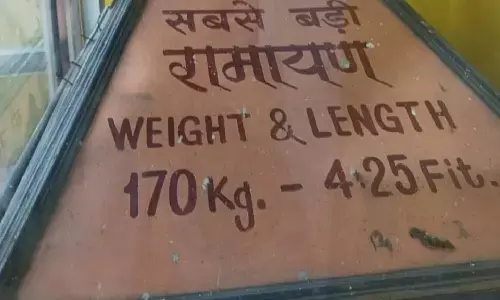 सबसे बड़ी
रामायण
WEIGHT & LENGTH
170 Kg. - 4.25 Fit.